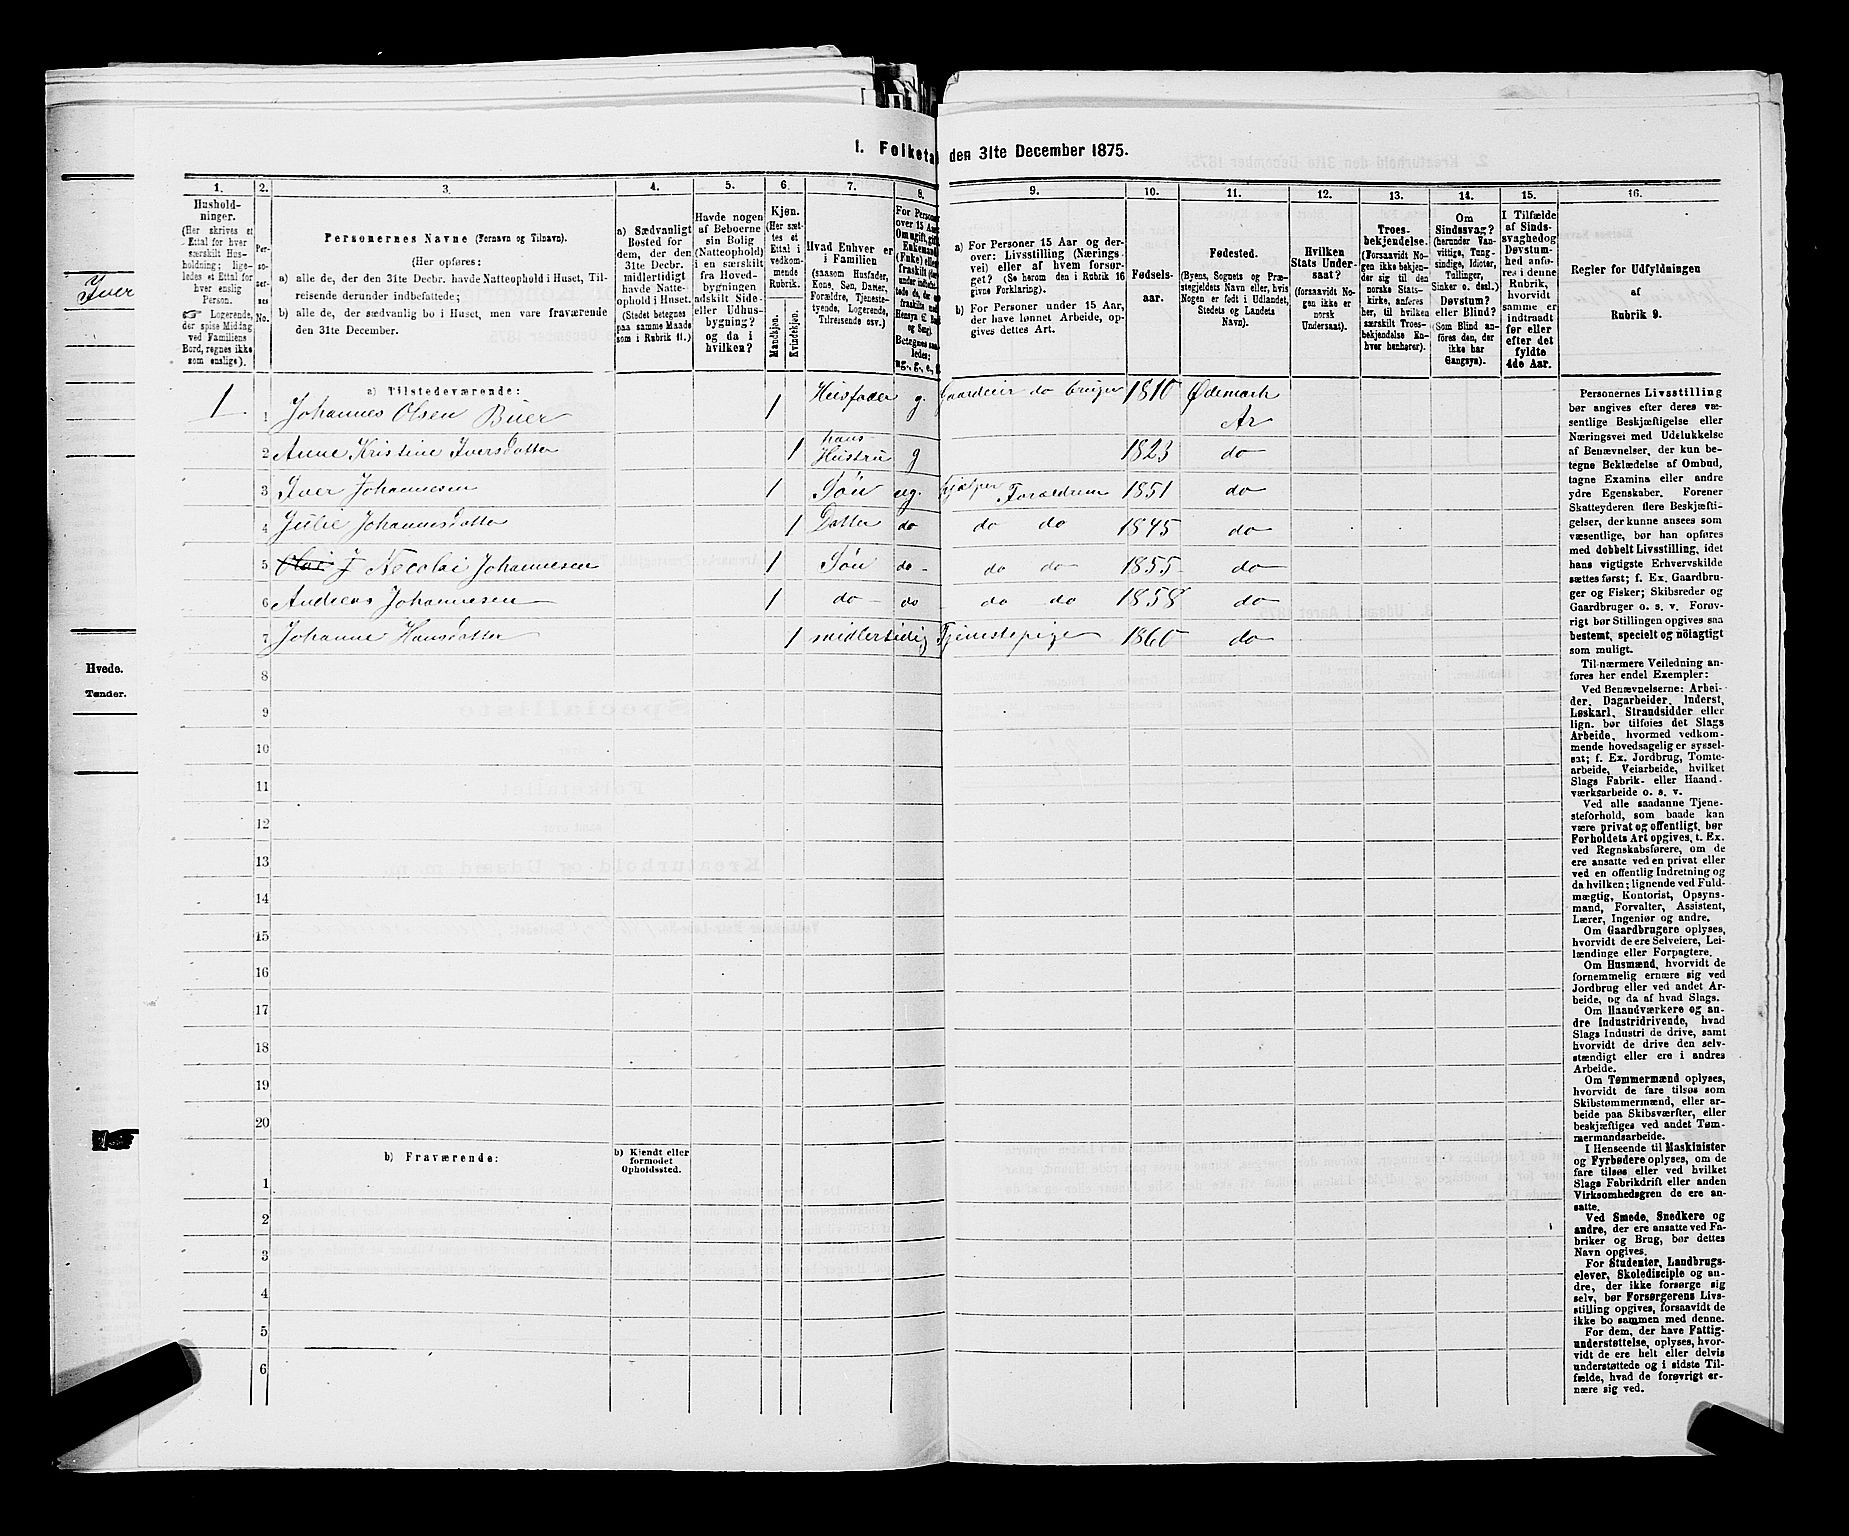 1. Folketal den 31te December 1875.
Iver
Hvede.
Tønder.
1. 2. 3. 4. 5. 6. 7. 8. 9. 10. 11. 12. 13. 14. 15. 16.
Hushold-
ninger.
(Her skrives et
Ettal for hver
særskilt Hus-
holdning; lige-
ledes et Ettal for
hver enslig
Person.
☞ Logerende,
der spise Middag
ved Familiens
Bord, regnes ikke
som enslige).
Per-
so-
ner-
nes
No.
Personernes Navne (Fornavn og Tilnavn).
(Her opføres:
a) alle de, der den 31te Decbr. havde Natteophold i Huset, Til-
reisende derunder indbefattede;
b) alle de, der sædvanlig bo i Huset, men vare fraværende
den 31te December.
a) Sædvanligt
Bosted for
dem, der den
31te Decbr.
midlertidigt
havde Natte-
ophold i Huset.
(Stedet betegnes
paa samme Maade
som i Rubrik 11.)
Havde nogen
af Beboerne
sin Bolig
(Natteophold)
i en særskilt
fra Hoved-
bygningen
adskilt Side-
eller Udhus-
bygning?
og da i
hvilken?
Kjøn.
(Her sæt-
tes et
Ettal i
vedkom-
mende
Rubrik.
Mandkjøn.
Kvindekjøn.
Hvad Enhver er
i Familien
(saasom Husfader,
Kone, Søn, Datter,
Forældre, Tjeneste-
tyende, Logerende,
Tilreisende osv.)
For Personer
over 15 Aar:
Om ugift, gift,
Enkemand
(Enke) eller
fraskilt
Betegnes saa-
ledes:
ug., g., e., f.
a) For Personer 15 Aar og der-
over: Livsstilling (Nærings-
vei) eller af hvem forsør-
get? (Se herom den i Rubrik 16
givne Forklaring).
b) For Personer under 15 Aar,
der have lønnet Arbeide, op-
gives dettes Art.
Fødsels-
aar.
Fødested.
(Byens, Sognets og Præ-
stegjeldets Navn eller, hvis
Nogen er født i Udlandet,
Stedets og Landets
Navn).
Hvilken
Stats Under-
saat?
(forsaavidt No-
gen ikke er
norsk
Undersaat).
Troes-
bekjendelse.
(Forsaavidt No-
gen ikke bekjen-
der sig til den
norske Stats-
kirke, anføres
her, til hvilken
særskilt Troes-
bekjendelse En-
hver henhører).
Om
Sindssvag?
(herunder Van-
vittige, Tung-
sindige, Idioter,
Tullinger,
Sinker o. desl.)
Døvstum?
eller Blind?
(Som Blind an-
føres den, der
ikke har
Gangsyn).
I Tilfælde
af Sinds-
svaghed og
Døvstum-
hed anfø-
res i denne
Rubrik,
hvorvidt
samme er
indtraadt
før eller
efter det
fyldte
4de Aar.
Regler for Udfyldningen
af
Rubrik 9.
a) Tilstedeværende:
1 1 Johannes Olsen Buer 1 Husfader g. Gaardeier do bruger 1810 Ødemark
Ar
2 Anne Kristine Iversdatter 1 hans Hustru g 1823 do
3 Iver Johannesen 1 Søn ug. hjælper Forældrene 1851 do
4 Julie Johannesdatter 1 Datter do do do 1845 do
5 J Necolai Johannesen 1 Søn do do do 1855 do
6 Andreas Johannesen 1 do do do do 1858 do
7 Johanne Hansdatter 1 midlertidig Tjenestepige 1860 do
8
9
10
11
12
13
14
15
16
17
18
19
20
b) Fraværende:
b) Kjendt eller
formodet
Opholdssted.
1
2
3
4
5
6
Personernes Livsstilling
bør angives efter deres væ-
sentlige Beskjæftigelse eller
Næringsvei med Udelukkelse
af Benævnelser, der kun be-
tegne Beklædelse af Ombud,
tagne Examina eller andre
ydre Egenskaber. Forener
Skatteyderen flere Beskjæfti-
gelser, der kunne ansees som
væsentlige, bør han opføres
med dobbelt Livsstilling, idet
hans vigtigste Erhvervskilde
sættes først; f. Ex. Gaardbru-
ger og Fisker; Skibsreder og
Gaardbruger o. s. v. Forøv-
rigt bør Stillingen opgives saa
bestemt, specielt og nøiagtigt
som muligt.
Til nærmere Veiledning an-
føres her endel Exempler:
Ved Benævnelserne: Arbei-
der, Dagarbeider, Inderst,
Løskarl, Strandsidder eller
lign. bør tilføies det Slags
Arbeide, hvormed vedkom-
mende hovedsagelig er syssel-
sat; f. Ex. Jordbrug, Tomte-
arbeide, Veiarbeide, hvilket
Slags Fabrik- eller Haand-
værksarbeide o. s. v.
Ved alle saadanne Tjene-
steforhold, som baade kan
være privat og offentligt, bør
Forholdets Art opgives, t. Ex.
ved Regnskabsførere, om de
ere ansatte ved en privat eller
ved en offentlig Indretning og
da hvilken; lignende ved Fuld-
mægtig, Kontorist, Opsyns-
mand, Forvalter, Assistent,
Lærer, Ingeniør og andre.
Om Gaardbrugere oplyses,
hvorvidt de ere Selveiere, Lei-
lændinge eller Forpagtere.
Om Husmænd, hvorvidt de
fornemmelig ernære sig ved
Jordbrug eller ved andet Ar-
beide, og da af hvad Slags.
Om Haandværkere og an-
dre Industridrivende, hvad
Slags Industri de drive, samt
hvorvidt de drive den selv-
stændigt eller ere i andres
Arbeide.
Om Tømmermænd oplyses,
hvorvidt de fare tilsøs som
Skibstømmermænd, eller ar-
beide paa Skibsværfter, eller
beskjæftiges ved andet Tøm-
mermandsarbeide.
I Henseende til Maskinister
og Fyrbødere oplyses, om de
fare tilsøs eller ved hvilket
Slags Fabrikdrift eller anden
Virksomhedsgren de ere an-
satte.
Ved Smede, Snedkere og
andre, der ere ansatte ved Fa-
briker og Brug, bør dettes
Navn opgives.
For Studenter, Landbrugs-
elever, Skoledisciple og an-
dre, der ikke forsørge sig
selv, bør Forsørgerens Livs-
stilling opgives, forsaavidt de
ikke bo sammen med denne.
For dem, der have Fattig-
understøttelse, oplyses, hvor-
vidt de ere helt eller delvis
understøttede og i sidste Til-
fælde, hvad de forøvrigt er-
nære sig ved.